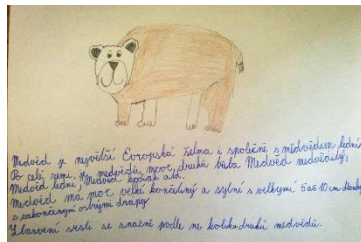 Medvěd je největší Evropská šelma i společně s medvědem ledním
Po celé zemi je medvědů moc druhů třeba Medvěd medvědítý,
Medvěd lední, Medvěd kodiak atd.
Medvěd má moc velké končetiny a sylné s velkymi 5 až 10 cm dlouhý
s zakončenými ostrými drápy
Zbarvení srsti se značně podle druhů medvědů.